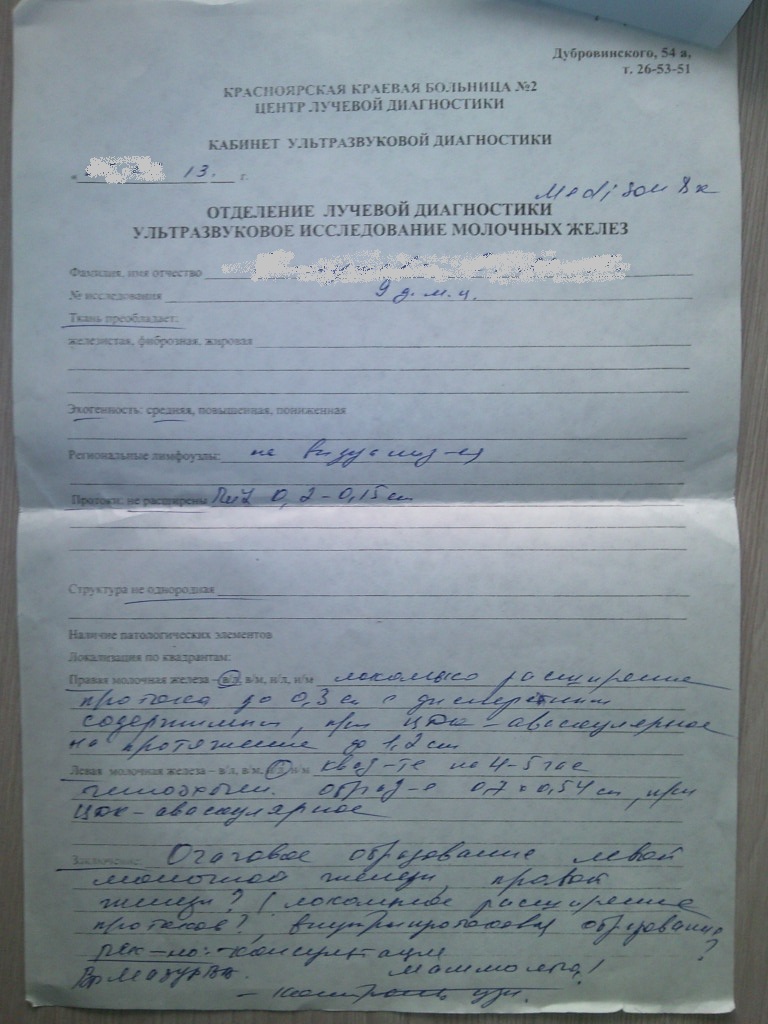 Дубровинского, 54 а,
т. 26-53-51
КРАСНОЯРСКАЯ КРАЕВАЯ БОЛЬНИЦА №2
ЦЕНТР ЛУЧЕВОЙ ДИАГНОСТИКИ
КАБИНЕТ УЛЬТРАЗВУКОВОЙ ДИАГНОСТИКИ
« 13. г.
Medison 8x
ОТДЕЛЕНИЕ ЛУЧЕВОЙ ДИАГНОСТИКИ
УЛЬТРАЗВУКОВОЕ ИССЛЕДОВАНИЕ МОЛОЧНЫХ ЖЕЛЕЗ
Фамилия, имя отчество
№ исследования 9 д.м.ц.
Ткань преобладает:
железистая, фиброзная, жировая
Эхогенность: средняя, повышенная, пониженная
Региональные лимфоузлы: не визуализ-ся
Протоки: не расширены 0,2-0,15 см
Структура не однородная
Наличие патологических элементов
Локализация по квадрантам:
Правая молочная железа – в/л, в/м, н/л, н/м локально расширение
протока до 0,3 см с дисперсным
содержимым, при ЦДК-аваскулярное
на протяжение до 1,2 см
Левая молочная железа – в/л, в/м, н/л, н/м квад-те на 4-5 час
гипоэхоген. образ-е 0,7 х 0,54 см, при
ЦДК-аваскулярное
Заключение: Очаговое образование левой
молочной железы, правой
железы? (локальное расширение
протоков?, внутрипротоковое образование
?
рек-но: консультация
маммолога!
Вр
- контроль узи.